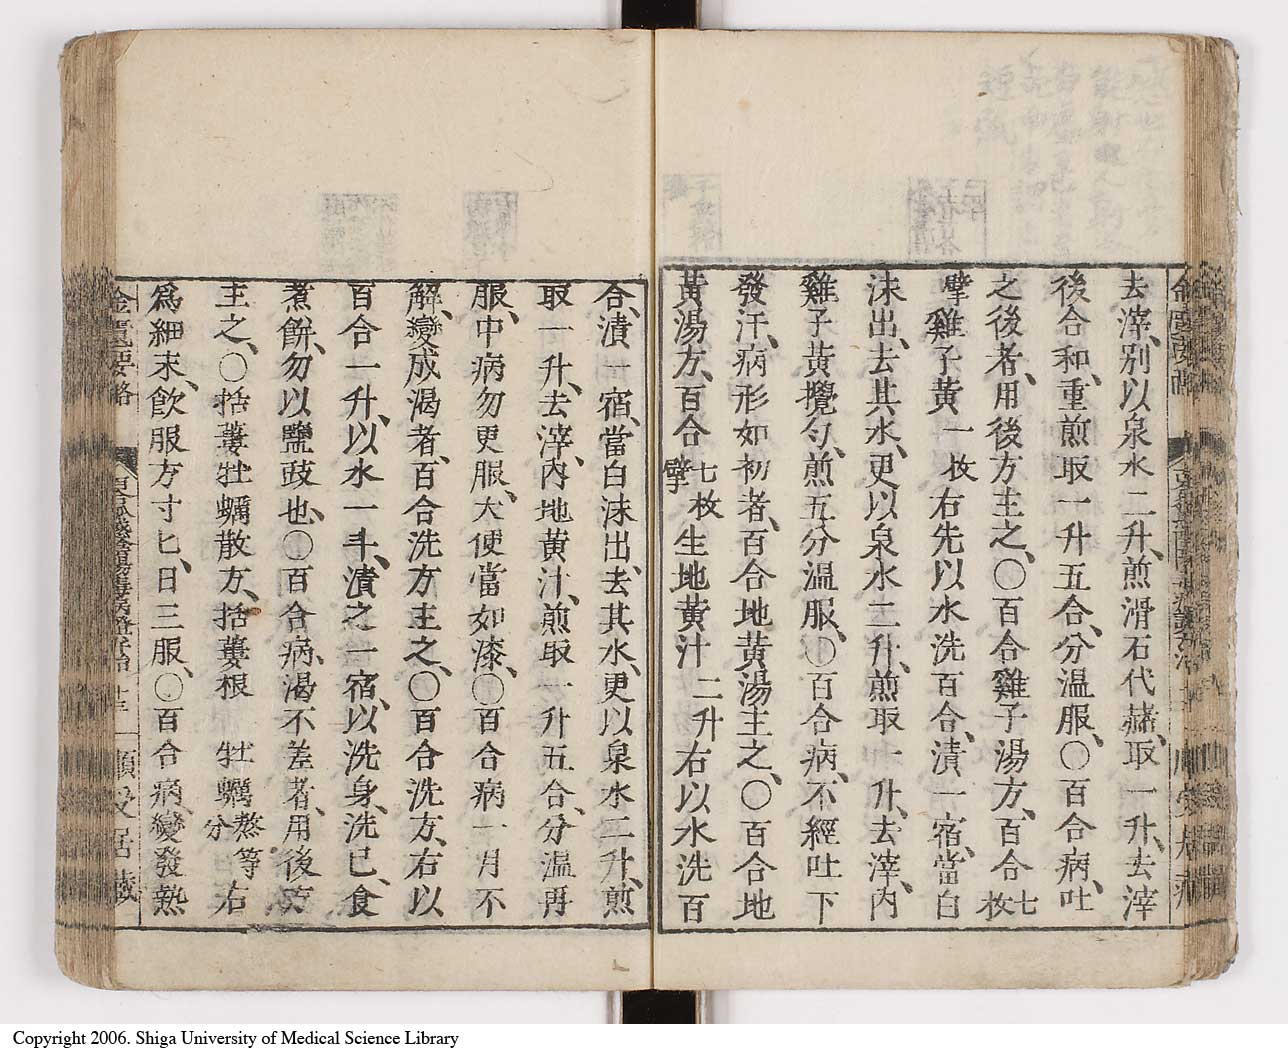 去滓、別以泉水二升、煎滑石代赭、取一升、去滓
後合和、重煎取一升五合、分溫服、○百合病、吐
之後者、用後方主之、○百合雞子湯方、百合七枚
擘雞子黃一枚右先以水洗百合、漬一宿、當白
沫出、去其水、更以泉水二升、煎取一升、去滓、內
雞子黃攪勻、煎五分溫服、○百合病、不經吐下
發汗、病形如初者、百合地黃湯主之、○百合地
黃湯方、百合七枚擘生地黃汁二升右以水洗百
合、漬一宿、當白沫出、去其水、更以泉水二升、煎
取一升、去滓、內地黃汁、煎取一升五合、分溫再
服、中病勿更服、大便當如漆、○百合病一月不
解、變成渴者、百合洗方主之、○百合洗方、右以
百合一升、以水一斗、漬之一宿、以洗身、洗已、食
煮餅、勿以鹽豉也、○百合病、渴不差者、用後方
主之、○括蔞牡蠣散方、括蔞根 牡蠣熬等分右
爲細末、飲服方寸匕、日三服、○百合病、變發熱
金匱要略
Copyright 2006. Shiga University of Medical Science Library